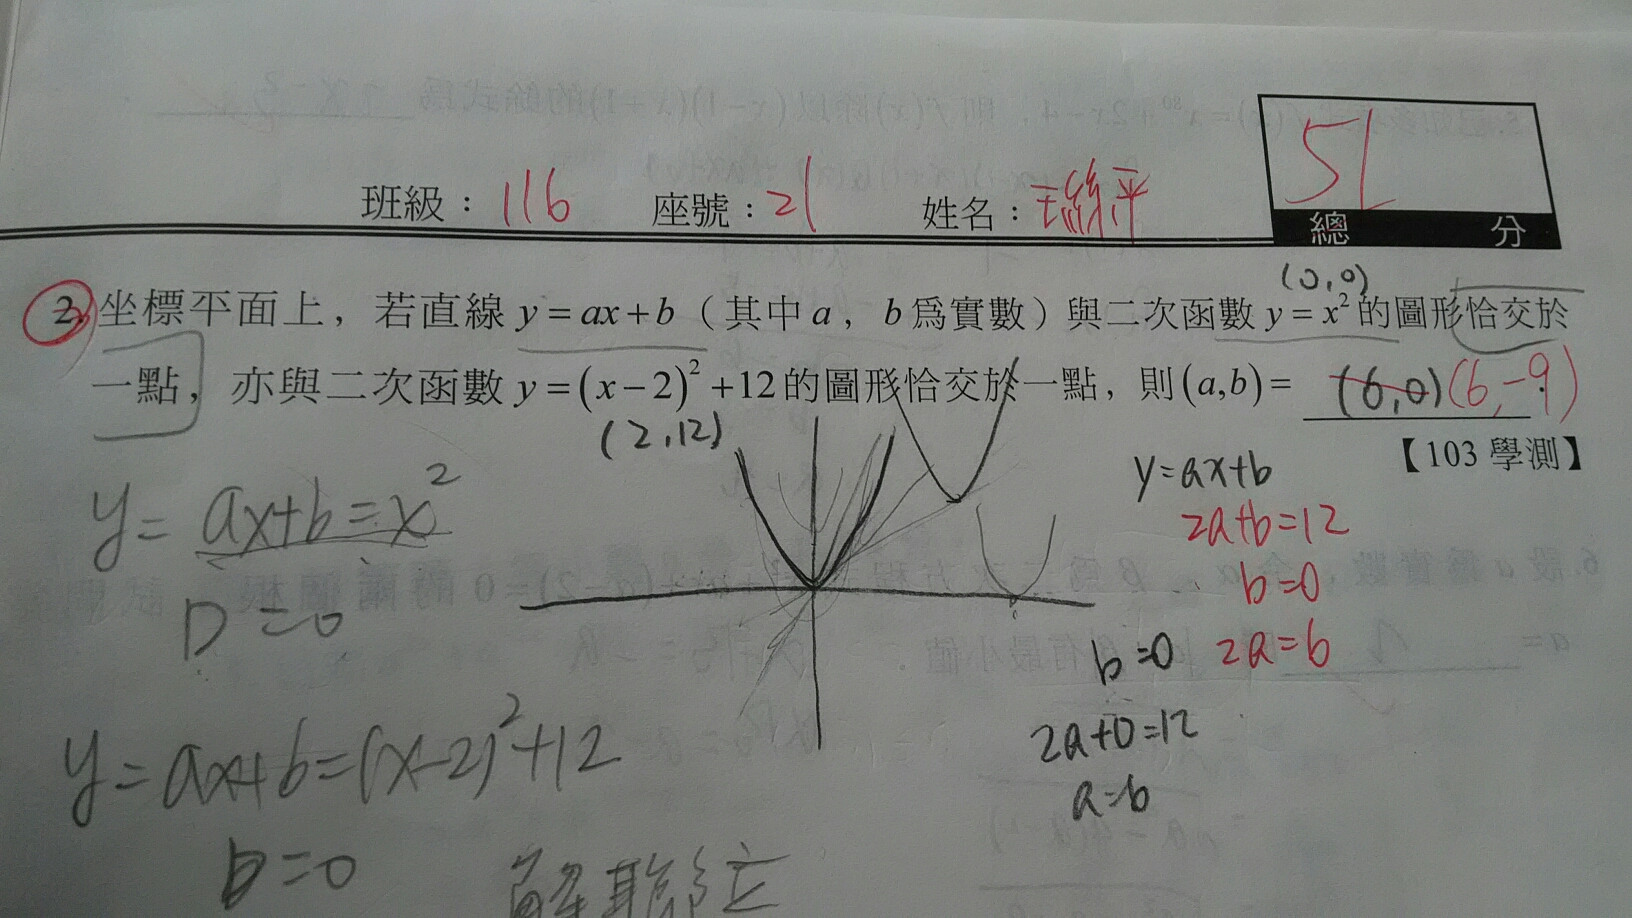 51
班級：116 座號：21 姓名：
總 分
(0,0)
2. 坐標平面上，若直線 y = ax + b（其中 a，b 為實數）與二次函數 y = x² 的圖形恰交於
一點，亦與二次函數 y = (x − 2)² + 12 的圖形恰交於一點，則 (a,b) = (6,0) (6,-9)
(2,12)
【103 學測】
y = ax+b = x²
D = 0
y = ax+b = (x-2)²+12
D = 0
解聯立
y = ax+b
2a+b=12
b=0
2a=6
b=0
2a+0=12
a=6